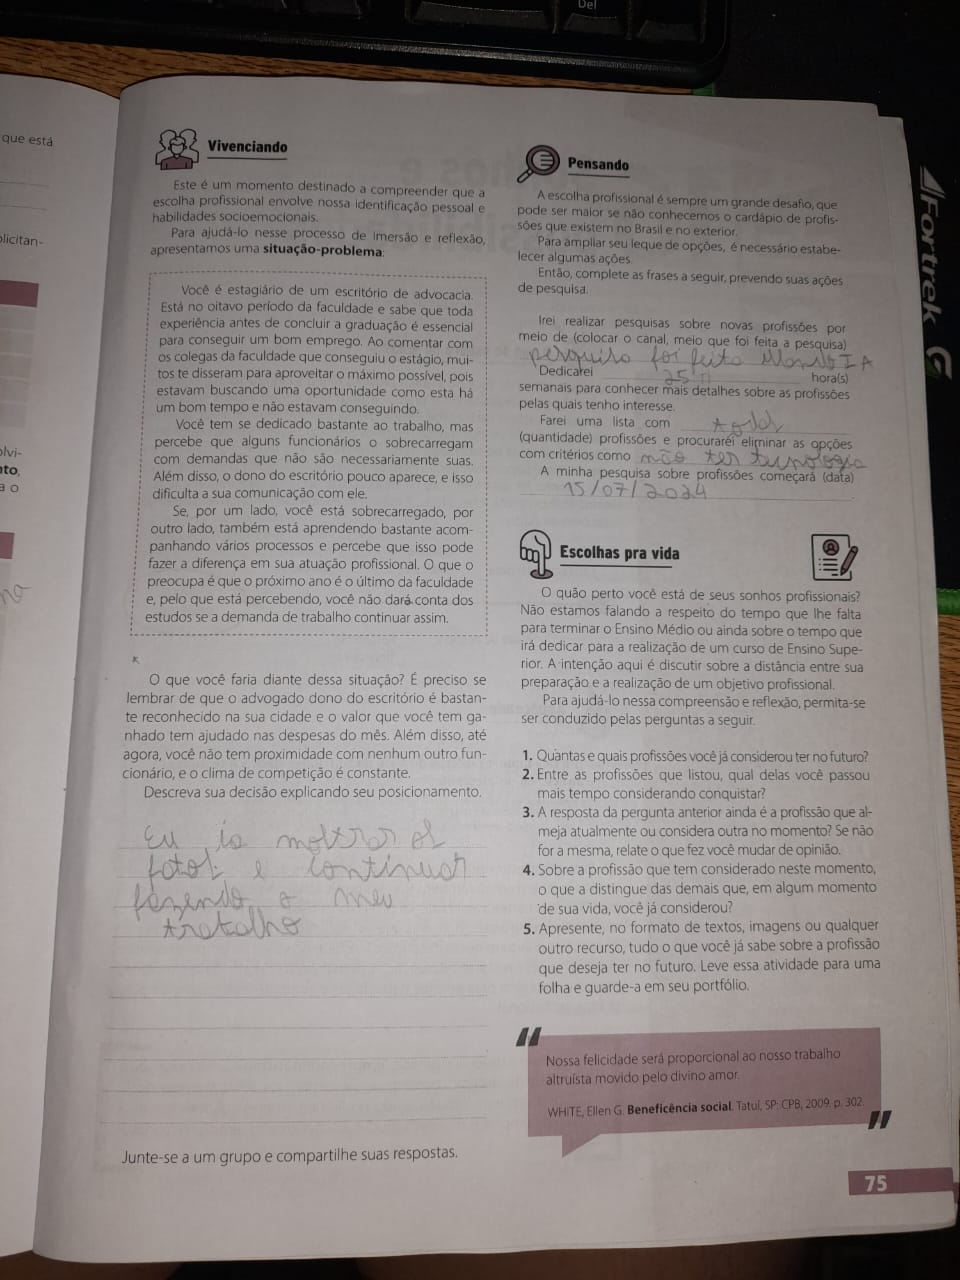 Del
que está
olicitan-
olvi-
nto,
a o
no
Fortrek
Vivenciando
Este é um momento destinado a compreender que a
escolha profissional envolve nossa identificação pessoal e
habilidades socioemocionais.
Para ajudá-lo nesse processo de imersão e reflexão,
apresentamos uma situação-problema:
Você é estagiário de um escritório de advocacia.
Está no oitavo período da faculdade e sabe que toda
experiência antes de concluir a graduação é essencial
para conseguir um bom emprego. Ao comentar com
os colegas da faculdade que conseguiu o estágio, mui-
tos te disseram para aproveitar o máximo possível, pois
estavam buscando uma oportunidade como esta há
um bom tempo e não estavam conseguindo.
Você tem se dedicado bastante ao trabalho, mas
percebe que alguns funcionários o sobrecarregam
com demandas que não são necessariamente suas.
Além disso, o dono do escritório pouco aparece, e isso
dificulta a sua comunicação com ele.
Se, por um lado, você está sobrecarregado, por
outro lado, também está aprendendo bastante acom-
panhando vários processos e percebe que isso pode
fazer a diferença em sua atuação profissional. O que o
preocupa é que o próximo ano é o último da faculdade
e, pelo que está percebendo, você não dará conta dos
estudos se a demanda de trabalho continuar assim.
O que você faria diante dessa situação? É preciso se
lembrar de que o advogado dono do escritório é bastan-
te reconhecido na sua cidade e o valor que você tem ga-
nhado tem ajudado nas despesas do mês. Além disso, até
agora, você não tem proximidade com nenhum outro fun-
cionário, e o clima de competição é constante.
Descreva sua decisão explicando seu posicionamento.
Eu ia mostrar os
fatos e continuar
fazendo o meu
trabalho
Junte-se a um grupo e compartilhe suas respostas.
Pensando
A escolha profissional é sempre um grande desafio, que
pode ser maior se não conhecemos o cardápio de profis-
sões que existem no Brasil e no exterior.
Para ampliar seu leque de opções, é necessário estabe-
lecer algumas ações.
Então, complete as frases a seguir, prevendo suas ações
de pesquisa.
Irei realizar pesquisas sobre novas profissões por
meio de (colocar o canal, meio que foi feita a pesquisa)
foi feita IA
Dedicarei 25 hora(s)
semanais para conhecer mais detalhes sobre as profissões
pelas quais tenho interesse.
Farei uma lista com
(quantidade) profissões e procurarei eliminar as opções
com critérios como não ter tecnologia
A minha pesquisa sobre profissões começará (data)
15/07/2024
Escolhas pra vida
O quão perto você está de seus sonhos profissionais?
Não estamos falando a respeito do tempo que lhe falta
para terminar o Ensino Médio ou ainda sobre o tempo que
irá dedicar para a realização de um curso de Ensino Supe-
rior. A intenção aqui é discutir sobre a distância entre sua
preparação e a realização de um objetivo profissional.
Para ajudá-lo nessa compreensão e reflexão, permita-se
ser conduzido pelas perguntas a seguir.
1. Quantas e quais profissões você já considerou ter no futuro?
2. Entre as profissões que listou, qual delas você passou
mais tempo considerando conquistar?
3. A resposta da pergunta anterior ainda é a profissão que al-
meja atualmente ou considera outra no momento? Se não
for a mesma, relate o que fez você mudar de opinião.
4. Sobre a profissão que tem considerado neste momento,
o que a distingue das demais que, em algum momento
de sua vida, você já considerou?
5. Apresente, no formato de textos, imagens ou qualquer
outro recurso, tudo o que você já sabe sobre a profissão
que deseja ter no futuro. Leve essa atividade para uma
folha e guarde-a em seu portfólio.
Nossa felicidade será proporcional ao nosso trabalho
altruísta movido pelo divino amor.
WHITE, Ellen G. Beneficência social. Tatuí, SP: CPB, 2009. p. 302.
75